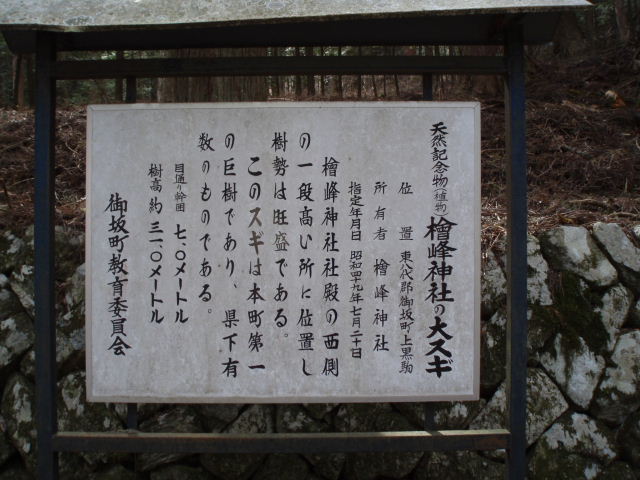 天然記念物(植物)檜峰神社の大スギ
位置 東八代郡御坂町上黒駒
所有者 檜峰神社
指定年月日 昭和四九年七月二十日
檜峰神社社殿の西側
の一段高い所に位置し
樹勢は旺盛である。
このスギは本町第一
の巨樹であり、県下有
数のものである。
目通り幹囲 七、〇メートル
樹高 約 三一、〇メートル
御坂町教育委員会